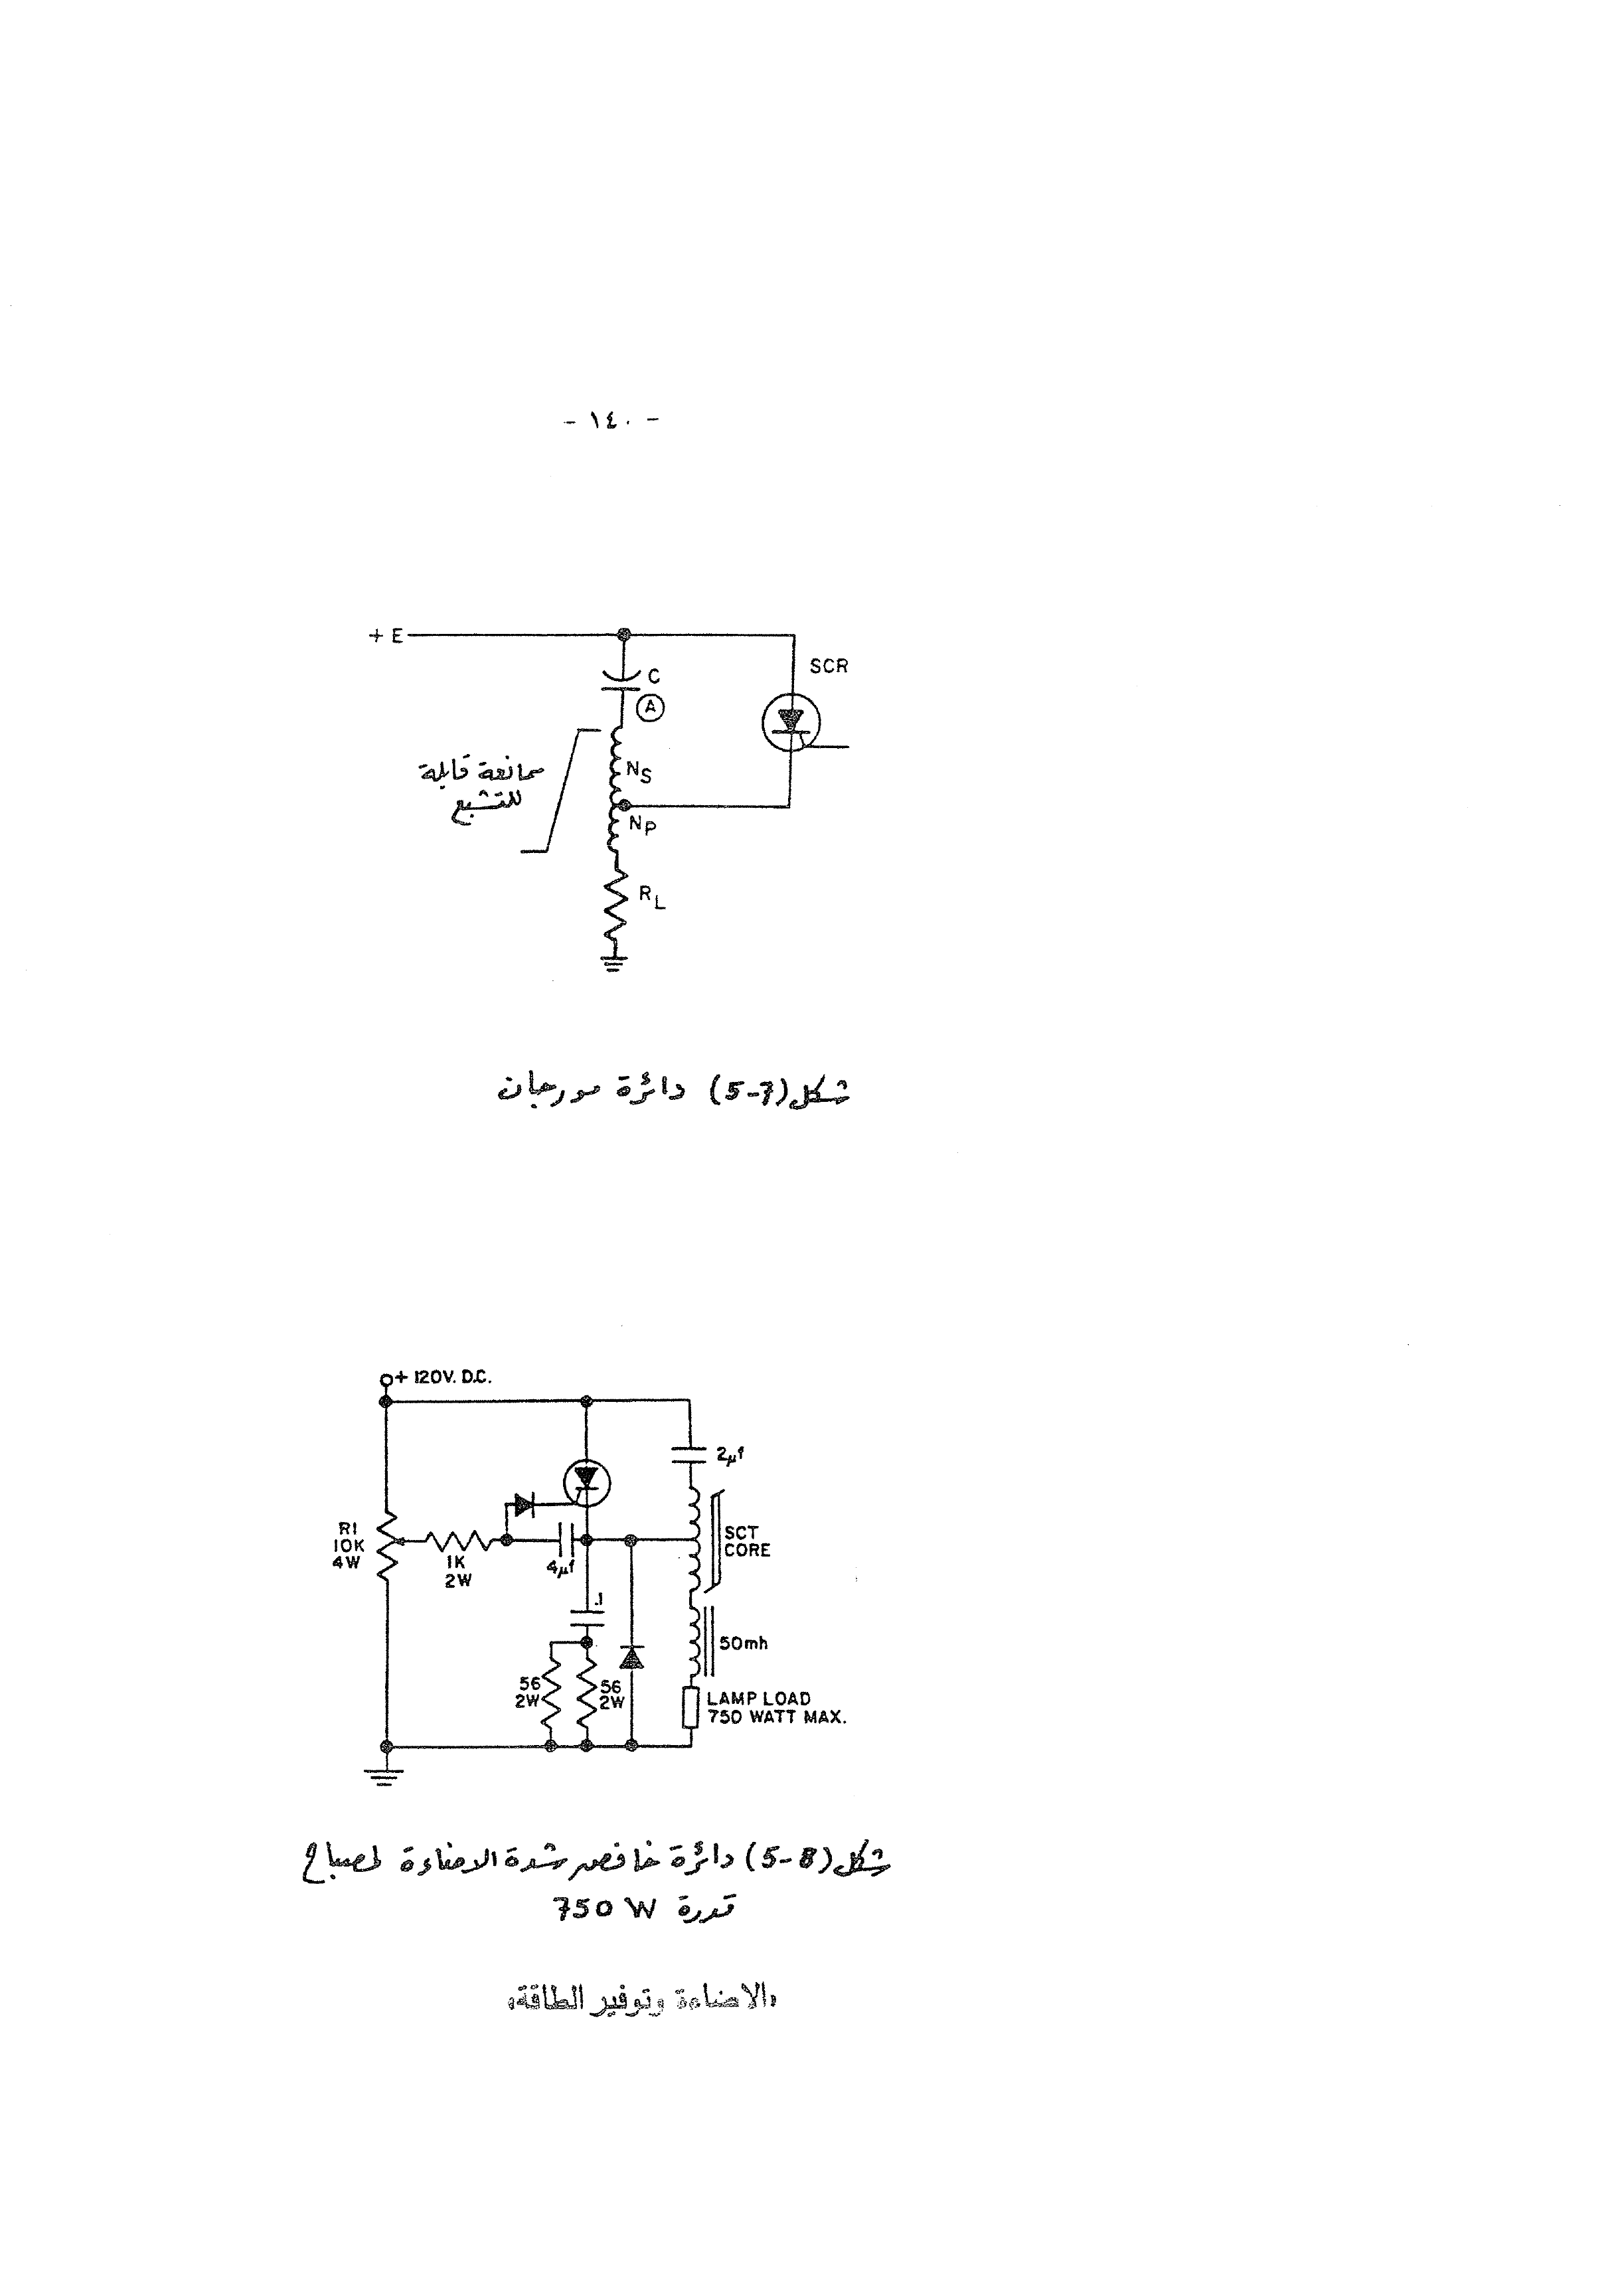 - ١٤٠ -
+ E
SCR
C
A
ممانعة قابلة
للتشبع
NS
NP
RL
شكل (5-7) دائرة مورجان
+ 120V. D.C.
2µf
R1
10K
4W
1K
2W
4µf
SCT
CORE
.1
50mh
56
2W
56
2W
LAMP LOAD
750 WATT MAX.
شكل (5-8) دائرة خافض شدة الاضاءة لمصباح
قدرة 750 W
«الاضاءة وتوفير الطاقة»